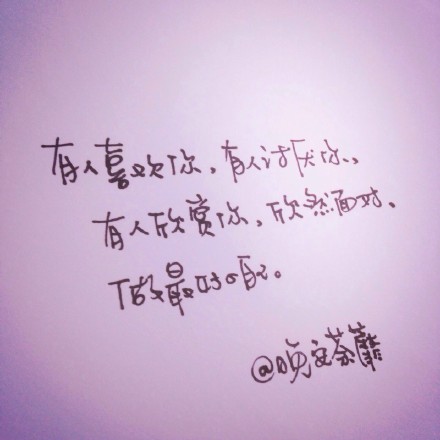 有人喜欢你,有人讨厌你、
有人欣赏你,欣然面对、
做最好的自己。
@晚安荼蘼